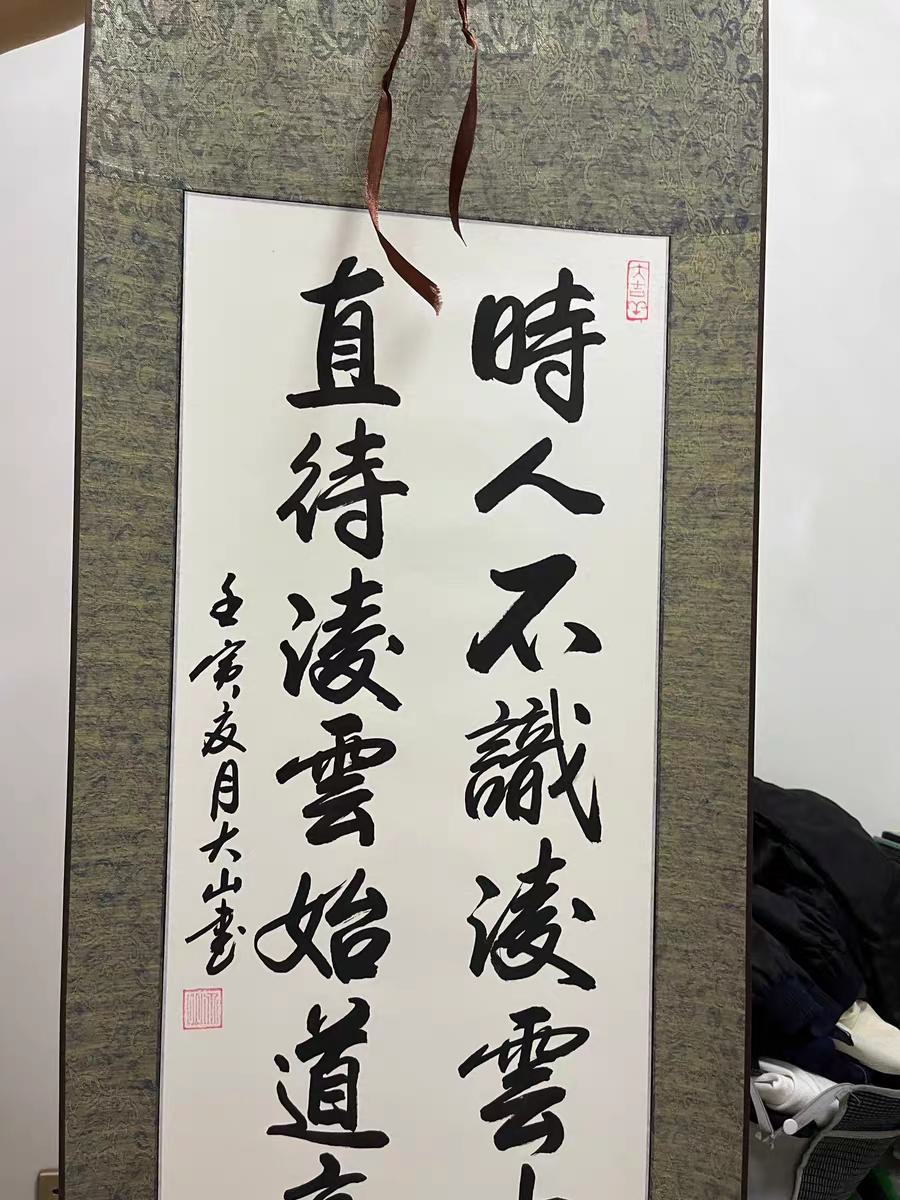 大吉
時人不識淩雲
直待淩雲始道
壬寅夜月大山書